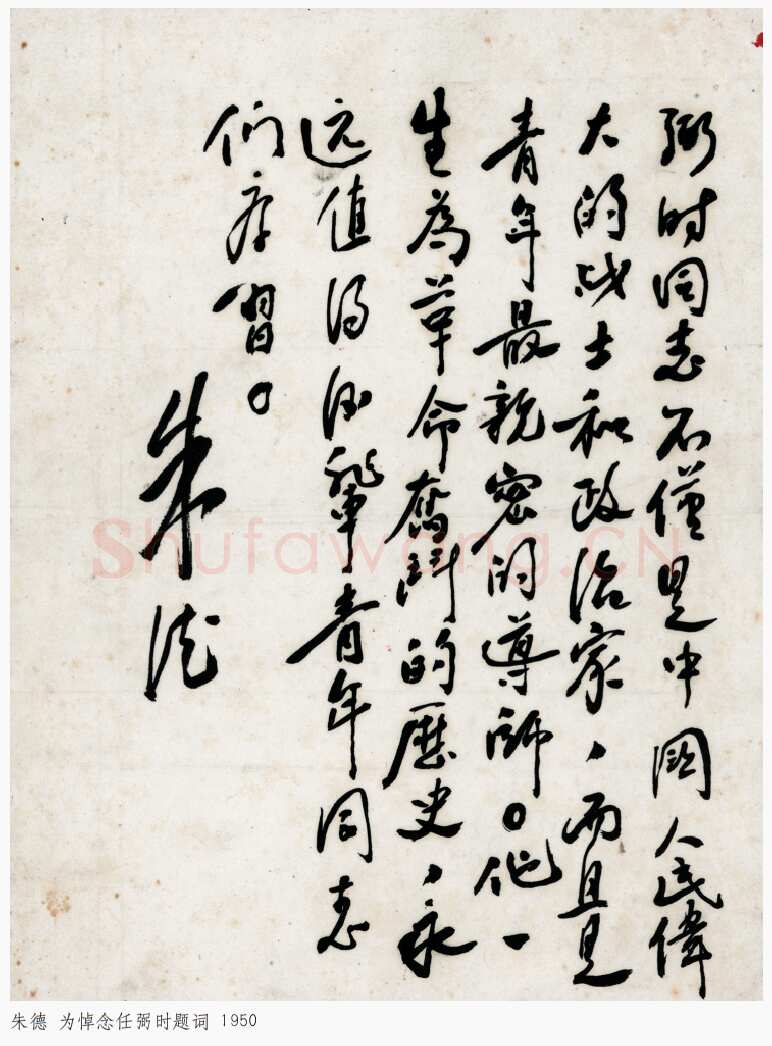 弼时同志不僅是中國人民偉
大的战士和政治家，而且是
青年最親密的導師。他一
生為革命奮鬥的歷史，永
远值得後輩青年同志
们学習。
朱德
Shufawang.CN
朱德 为悼念任弼时题词 1950